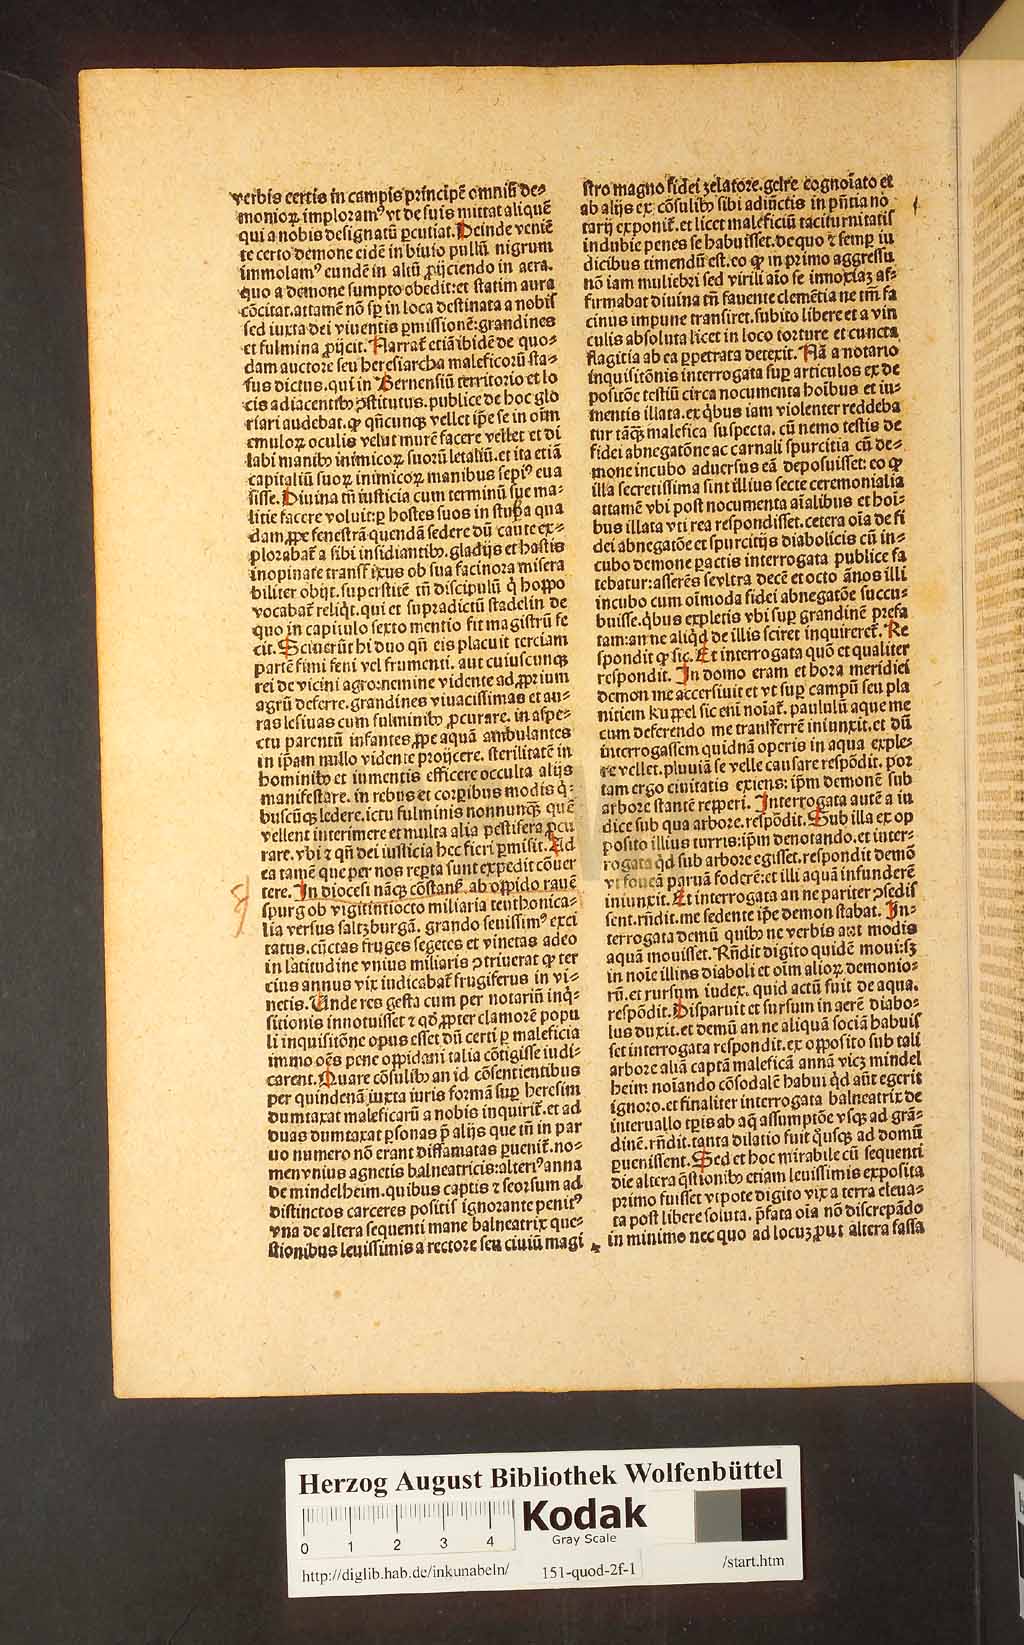 verbis certis in campis principẽ omniũ de⸗
monioꝝ imploramꝰ vt de suis mittat aliquẽ
qui a nobis designatũ ꝑcutiat. Deinde veniẽ
te certo demone eidẽ in biuio pullũ nigrum
immolamꝰ eundẽ in altũ ꝓijciendo in aera.
quo a demone sumpto obedit: et statim aura
cõcitat. attamẽ nõ sꝑ in loca destinata a nobis
sed iuxta dei viuentis ꝑmissionẽ: grandines
et fulmina ꝓijcit. Narrat̃ etiã ibidẽ de quo⸗
dam auctore seu heresiarcha maleficorũ sta⸗
fus dictus. qui in Bernensiũ territorio et lo
cis adiacentibꝰ ꝯstitutus. publice de hoc glo
riari audebat. ꝙ qñcunqꝫ vellet ip̃e se in oĩm
emuloꝝ oculis velut murẽ facere vellet et di
labi manibꝰ inimicoꝝ suorũ letaliũ. et ita etiã
capitaliũ suoꝝ inimicoꝝ manibus sepiꝰ eua
sisse. Diuina tñ iusticia cum terminũ sue ma⸗
litie facere voluit: ꝑ hostes suos in stuba qua
dam ꝓpe fenestrã quendã sedere dũ caute ex⸗
plorabat̃ a sibi insidiantibꝰ. gladijs et hastis
inopinate transfixus ob sua facinora misera
biliter obijt. superstitẽ tñ discipulũ q̇ hoppo
vocabat̃ reliq̇t. qui et supradictũ stadelin de
quo in capitulo sexto mentio fit magistrũ fe
cit. Sciuerũt hi duo qñ eis placuit terciam
partẽ fimi feni vel frumenti. aut cuiuscunqꝫ
rei de vicini agro: nemine vidente ad ꝓprium
agrũ deferre. grandines viuacissimas et au⸗
ras lesiuas cum fulminibꝰ ꝓcurare. in aspe⸗
ctu parentũ infantes ꝓpe aquã ambulantes
in ip̃am nullo vidente proijcere. sterilitatẽ in
hominibꝰ et iumentis efficere occulta alijs
manifestare. in rebus et corꝑibus modis q̇⸗
buscũqꝫ ledere. ictu fulminis nonnunqꝫ quẽ
vellent interimere et multa alia pestifera ꝓcu
rare. vbi ⁊ qñ dei iusticia hec fieri ꝑmisit. Ad
ea tamẽ que per nos reꝑta sunt expedit cõuer
tere. In diocesi nãqꝫ cõstañ. ab oppido rauẽ
spurg ob vigitintiocto miliaria teuthonica⸗
lia versus saltzburgã. grando seuissimꝰ exci
tatus. cũctas fruges segetes et vinetas adeo
in latitudine vnius miliaris ꝯtriuerat ꝙ ter
cius annus vix iudicabat̃ frugiferus in vi⸗
netis. Unde res gesta cum per notariũ inq̇⸗
sitionis innotuisset ⁊ qd̕ ꝓpter clamorẽ popu
li inquisitõne opus esset dũ certi ꝑ maleficia
immo oẽs pene oppidani talia cõtigisse iudi⸗
carent. Quare cõsulibꝰ an id cõsentientibus
per quindenã iuxta iuris formã suꝑ heresim
dumtaxat maleficarũ a nobis inquirit̃. et ad
duas dumtaxat ꝑsonas p̃ alijs que tñ in par
uo numero nõ erant diffamatas ꝑuenit̃. no⸗
men vnius agnetis balneatricis: alteriꝰ anna
de mindelheim. quibus captis ⁊ seorsum ad
distinctos carceres positis ignorante penitꝰ
vna de altera sequenti mane balneatrix que⸗
stionibus leuissimis a rectore seu ciuiũ magi
stro magno fidei zelatore. gelre cognoĩato et
ab alijs ex cõsulibꝰ sibi adiũctis in pñtia no
tarij exponit̃. et licet maleficiũ taciturnitatis
indubie penes se habuisset. de quo ⁊ semꝑ iu
dicibus timendũ est. eo ꝙ in primo aggressu
nõ iam muliebri sed virili aĩo se innoxiaꝫ af⸗
firmabat diuina tñ fauente clemẽtia ne tm̃ fa
cinus impune transiret. subito libere et a vin
culis absoluta licet in loco torture et cuncta
flagitia ab ea ꝑpetrata detexit. Nã a notario
inquisitõnis interrogata suꝑ articulos ex de
positõe testiũ circa nocumenta hoĩbus et iu⸗
mentis illata. ex q̇bus iam violenter reddeba
tur tãqꝫ malefica suspecta. cũ nemo testis de
fidei abnegatõne ac carnali spurcitia cũ de⸗
mone incubo aduersus eã deposuisset: eo ꝙ
illa secretissima sint illius secte ceremonialia
attamẽ vbi post nocumenta aĩalibus et hoĩ⸗
bus illata vti rea respondisset. cetera oĩa de fi
dei abnegatõe et spurcitijs diabolicis cũ in⸗
cubo demone ꝑactis interrogata publice fa
tebatur: asserẽs se vltra decẽ et octo ãnos illi
incubo cum oĩmoda fidei abnegatõe succu⸗
buisse. q̇bus expletis vbi suꝑ grandinẽ prefa
tam: an ne aliq̇d de illis sciret inquireret̃. Re
spondit ꝙ sic. Et interrogata quõ et qualiter
respondit. In domo eram et hora meridiei
demon me accersiuit et vt suꝑ campũ seu pla
nitiem kuppel sic eni noĩat̃. paululũ aque me
cum deferendo me transferrẽ iniunxit. et dũ
interrogassem quidnã operis in aqua exple⸗
re vellet. pluuiã se velle causare respõdit. por
tam ergo ciuitatis exiens: ip̃m demonẽ sub
arbore stantẽ repperi. Interrogata autẽ a iu
dice sub qua arbore. respõdit. Sub illa ex op
posito illius turris: ip̃m denotando. et inter⸗
rogata q̇d sub arbore egisset. respondit demõ
vt foueã paruã foderẽ: et illi aquã infunderẽ
iniunxit. Et interrogata an ne pariter ꝯsedis
sent. rñdit. me sedente ip̃e demon stabat. In⸗
terrogata demũ quibꝰ ne verbis aut modis
aquã mouisset. Rñdit digito quidẽ moui: sꝫ
in noĩe illius diaboli et oĩm alioꝝ demonio⸗
rũ. et rursum iudex. quid actũ fuit de aqua.
respõdit. Disparuit et sursum in aerẽ diabo⸗
lus duxit. et demũ an ne aliquã sociã habuis
set interrogata respondit. ex opposito sub tali
arbore aliã captã maleficã annã vicꝫ mindel
heim noĩando cõsodalẽ habui q̇d aũt egerit
ignoro. et finaliter interrogata balneatrix de
interuallo tꝑis ab aq̃ assumptõe vsqꝫ ad grã⸗
dinẽ. rñdit. tanta dilatio fuit q̇usqꝫ ad domũ
ꝑuenissent. Sed et hoc mirabile cũ sequenti
die altera q̃stionibꝰ etiam leuissimis exposita
primo fuisset vtpote digito vix a terra eleua⸗
ta post libere soluta. p̃fata oĩa nõ discrepãdo
in minimo nec quo ad locuꝫ ꝓut altera fassa
Herzog August Bibliothek Wolfenbüttel
0 1 2 3 4
Kodak
Gray Scale
http://diglib.hab.de/inkunabeln/ 151-quod-2f-1 /start.htm